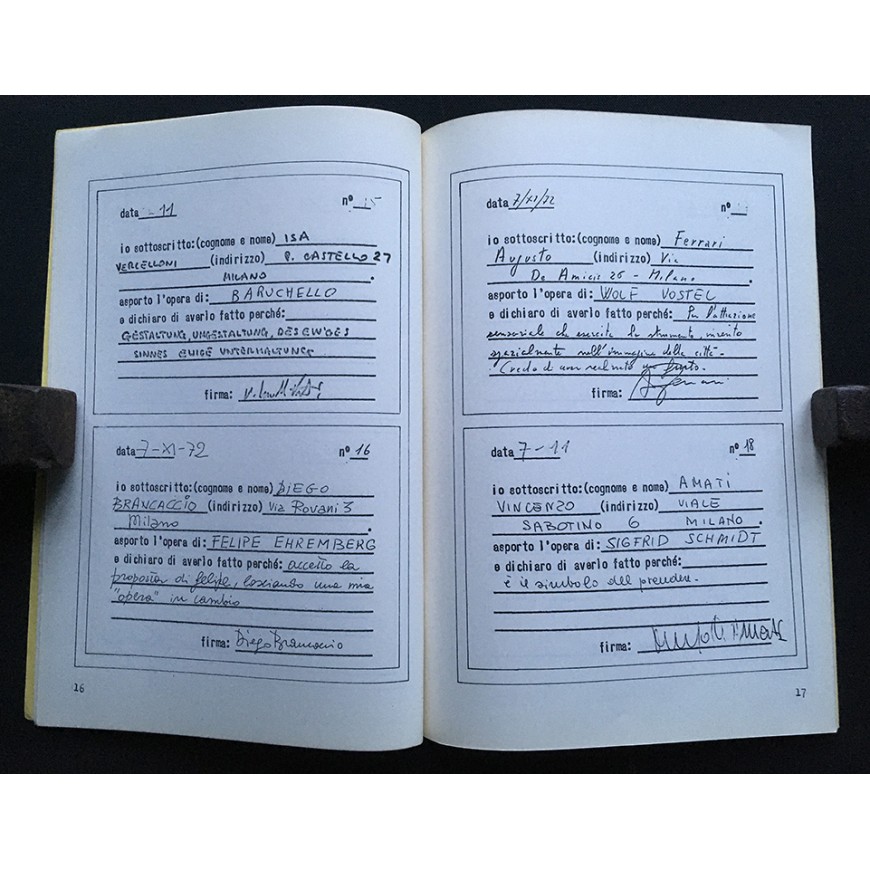 data -11 nº 15
io sottoscritto:(cognome e nome) ISA
VERCELLONI (indirizzo) P. CASTELLO 27
MILANO .
asporto l'opera di: BARUCHELLO
e dichiaro di averlo fatto perché:
GESTALTUNG, UNGESTALTUNG, DES EW'GES
SINNES EWIGE UNTERHALTUNG
firma:
data 7-XI-72 nº 16
io sottoscritto:(cognome e nome) DIEGO
BRANCACCIO (indirizzo) Via Rovani 3
Milano .
asporto l'opera di: FELIPE EHREMBERG
e dichiaro di averlo fatto perché: accetto la
proposta di felipe, lasciando una mia
"opera" in cambio
firma: Diego Brancaccio
16
data 7/XI/72 nº
io sottoscritto:(cognome e nome) Ferrari
Augusto (indirizzo) Via
De Amicis 26 - Milano .
asporto l'opera di: WOLF VOSTEL
e dichiaro di averlo fatto perché: Per l'attrazione
sensoriale che esercita lo strumento, inserito
spazialmente nell'immagine della città -
Credo di aver reduto un furto.
firma:
data 7-11 nº 18
io sottoscritto:(cognome e nome) AMATI
VINCENZO (indirizzo) VIALE
SABOTINO 6 MILANO .
asporto l'opera di: SIGFRID SCHMIDT
e dichiaro di averlo fatto perché:
è il simbolo del prendere.
firma:
17